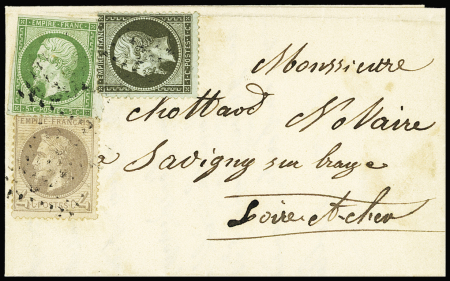 EMPIRE FRANC
EMPIRE FRANC
POSTES
EMPIRE FRANÇAIS
Monssieure
Chottard Notaire
a Savigny sur braye
Loire et cher